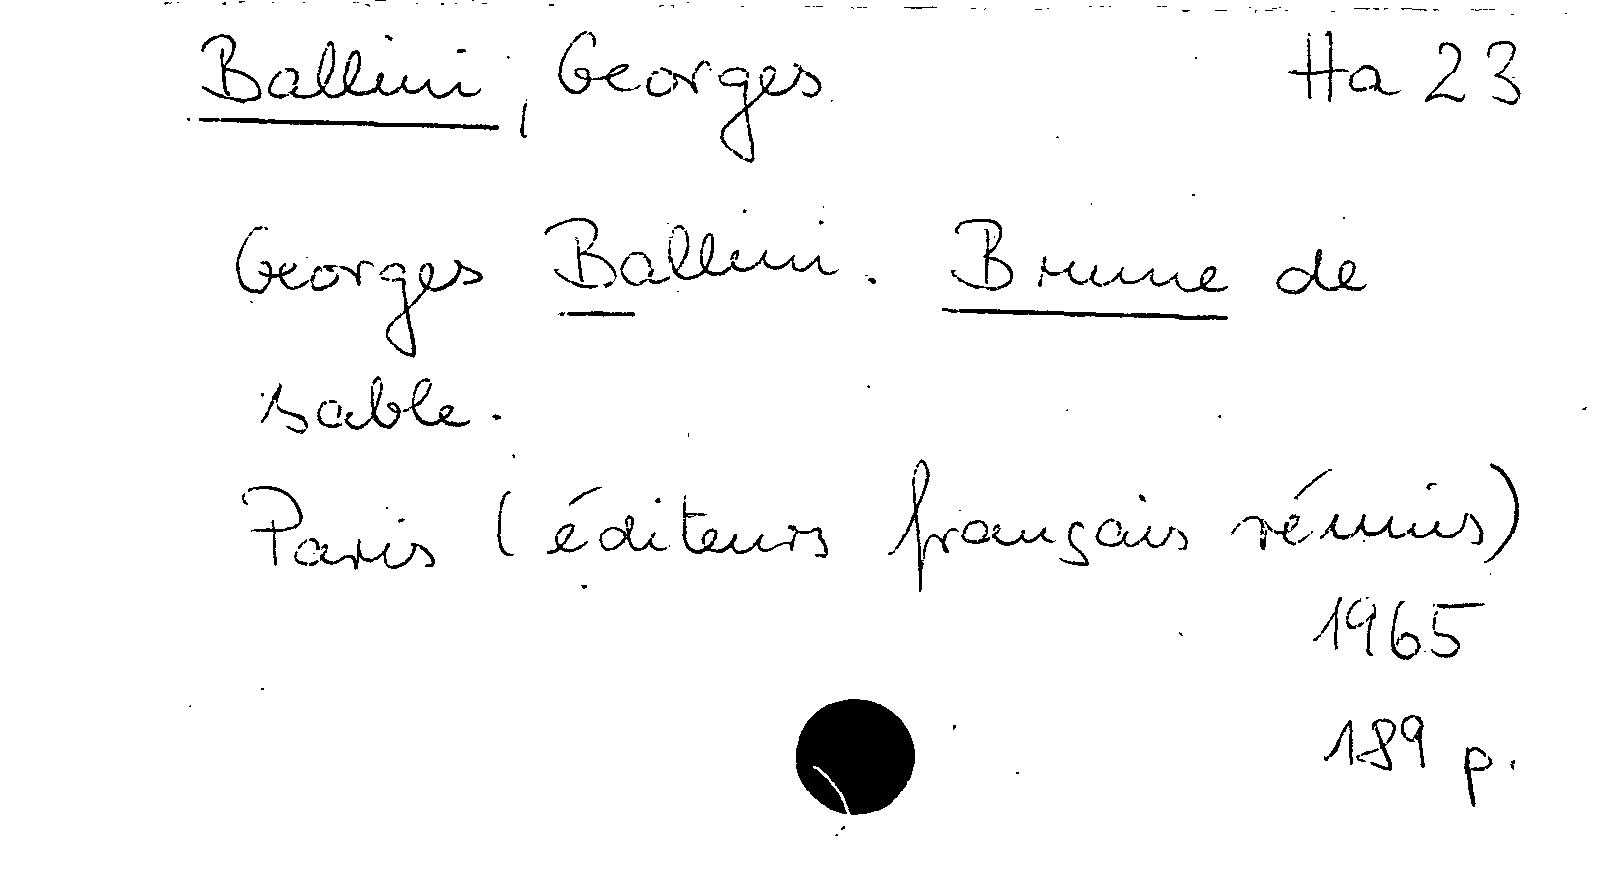 Ballini, Georges Ha 23
Georges Ballini. Brune de
sable.
Paris (éditeurs français réunis)
1965
189 p.